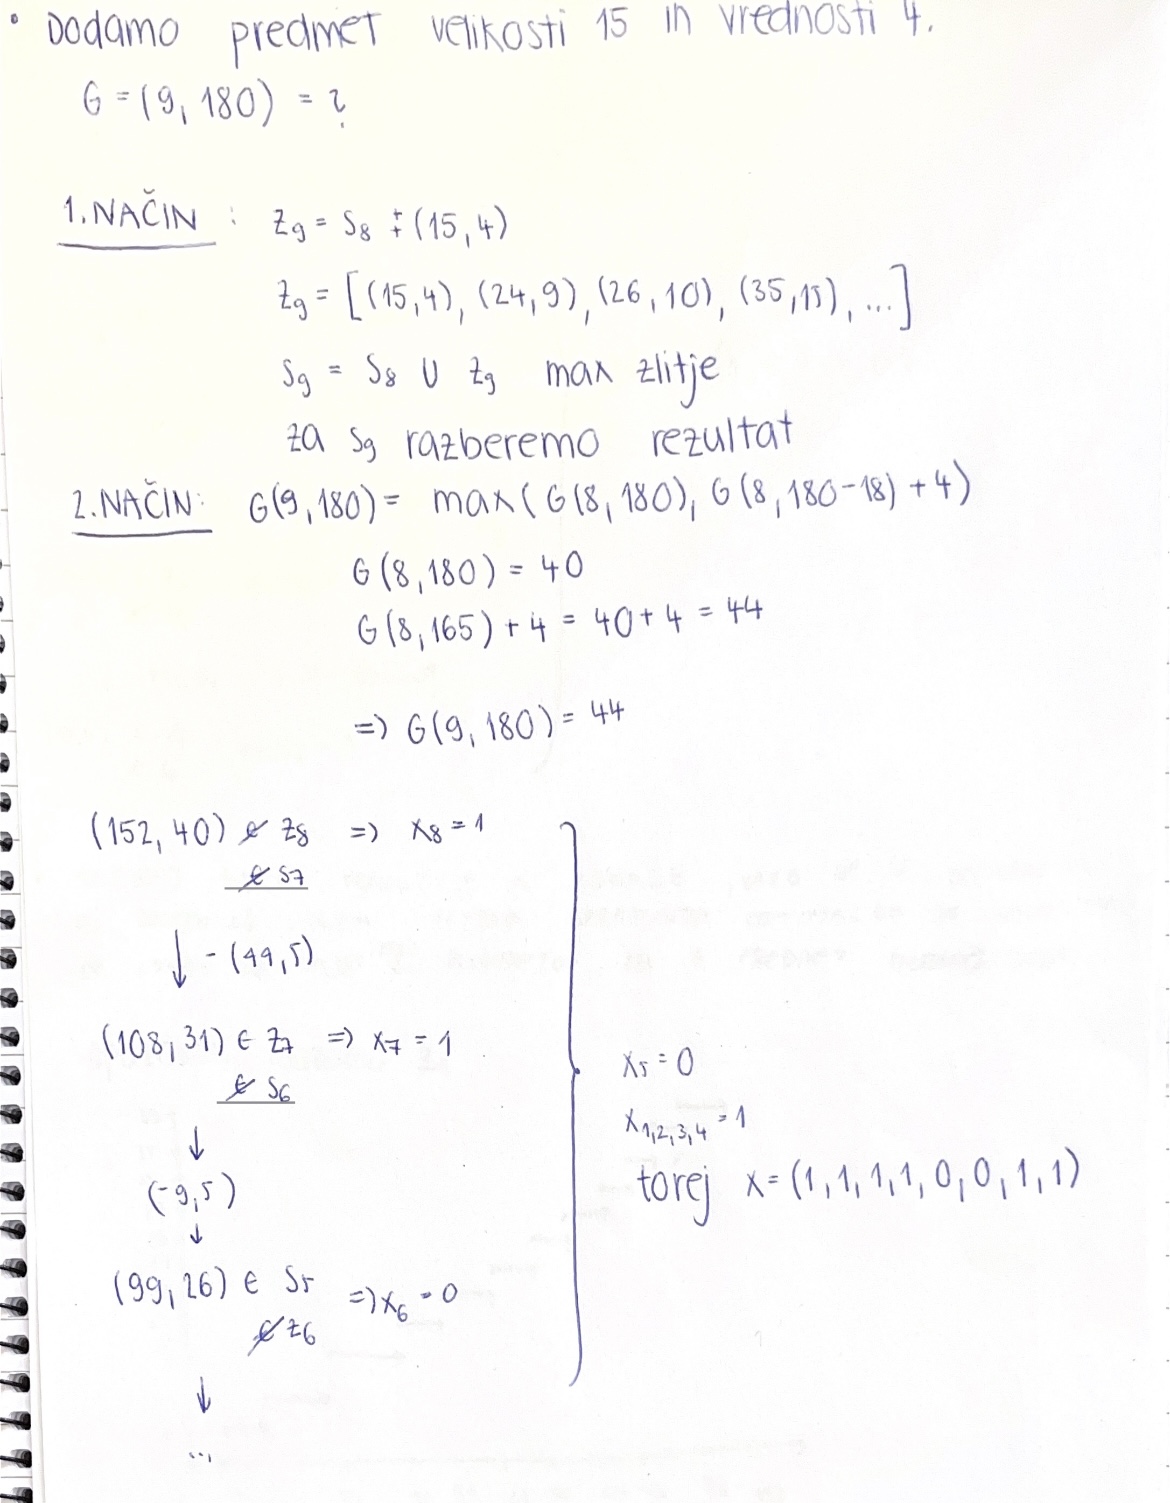 • Dodamo predmet velikosti 15 in vrednosti 4.
G = (9, 180) = ?
1. NAČIN : Z9 = S8 ∔ (15, 4)
Z9 = [(15,4), (24, 9), (26, 10), (35, 15), ...]
S9 = S8 U Z9 max zlitje
za S9 razberemo rezultat
2. NAČIN: G(9, 180) = max(G(8, 180), G(8, 180-18) + 4)
G(8, 180) = 40
G(8, 165) + 4 = 40 + 4 = 44
=> G(9, 180) = 44
(152, 40) ∉ Z8 => X8 = 1
∉ S7
↓ - (44, 5)
(108, 31) ∈ Z7 => X7 = 1
∉ S6
↓
(-9, 5)
↓
(99, 26) ∈ S5 => X6 = 0
∉ Z6
↓
...
X5 = 0
X1,2,3,4 = 1
torej X = (1, 1, 1, 1, 0, 0, 1, 1)